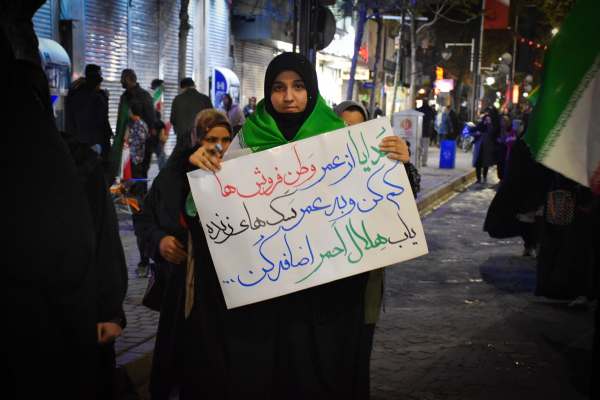 خدایا از عمر وطن فروش ها
کم کن و به عمر سگ های زنده
یاب هلال احمر اضافه کن...